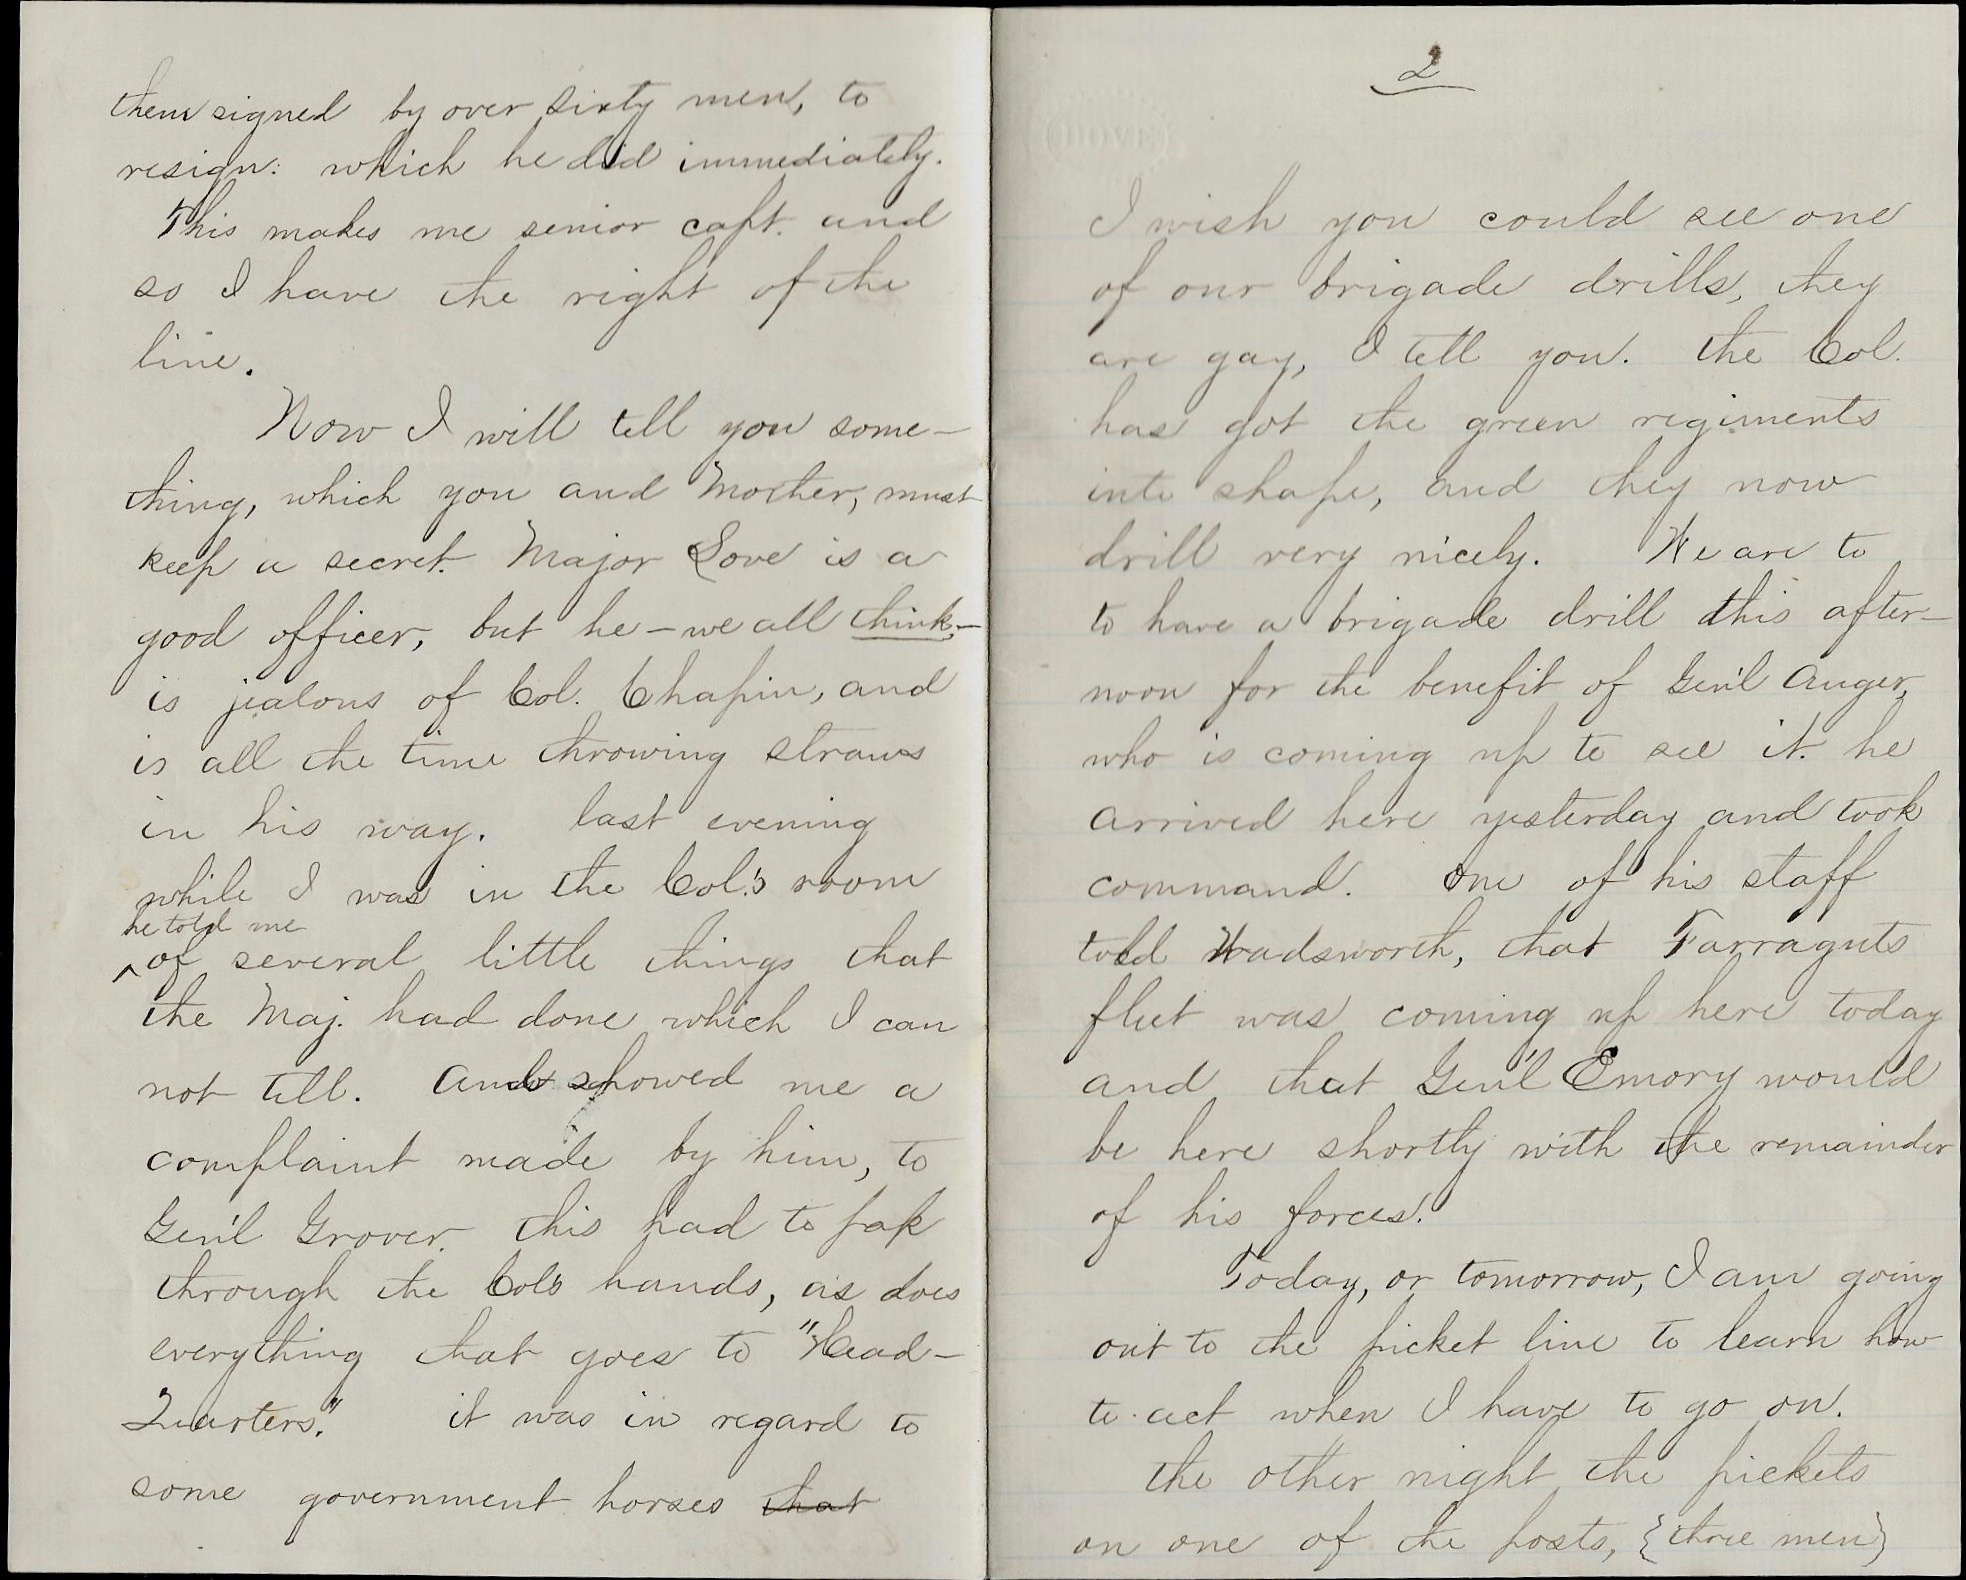 them signed by over sixty men, to
resign: which he did immediately.
This makes me senior capt. and
so I have the right of the
line.
Now I will tell you some-
thing, which you and Mother, must
keep a secret. Major Love is a
good officer, but he – we all think, –
is jealous of Col. Chapin, and
is all the time throwing straws
in his way. last evening
while I was in the Col.'s room
he told me
^ of several little things that
the Maj. had done which I can
not tell. And showed me a
complaint made by him, to
Gen'l Grover. this had to pass
through the Col's hands, as does
everything that goes to "Head-
Quarters." it was in regard to
some government horses that
2
I wish you could see one
of our brigade drills, they
are gay, I tell you. the Col.
has got the green regiments
into shape, and they now
drill very nicely. We are to
to have a brigade drill this after-
noon for the benefit of Gen'l Auger,
who is coming up to see it. he
arrived here yesterday and took
command. One of his staff
told Wadsworth, that Farraguts
fleet was coming up here today
and that Gen'l Emory would
be here shortly with the remainder
of his forces.
Today, or tomorrow, I am going
out to the picket line to learn how
to act when I have to go on.
the other night the pickets
on one of the posts, {three men}